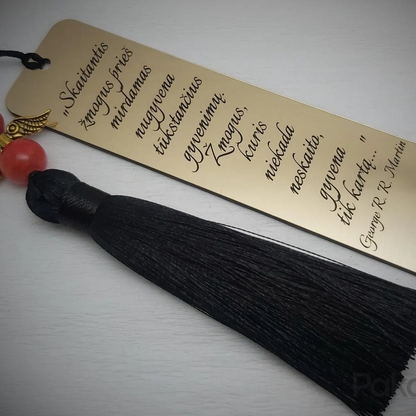 "Skaitantis
žmogus prieš
mirdamas
nugyvena
tūkstančius
gyvenimų.
Žmogus,
kuris
niekada
neskaito,
gyvena
tik kartą... "
George R. R. Martin